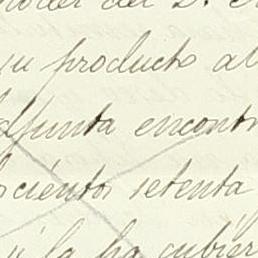 poder del D.
su producto al
adjunta encontr
scientos setenta
y la ha cubier